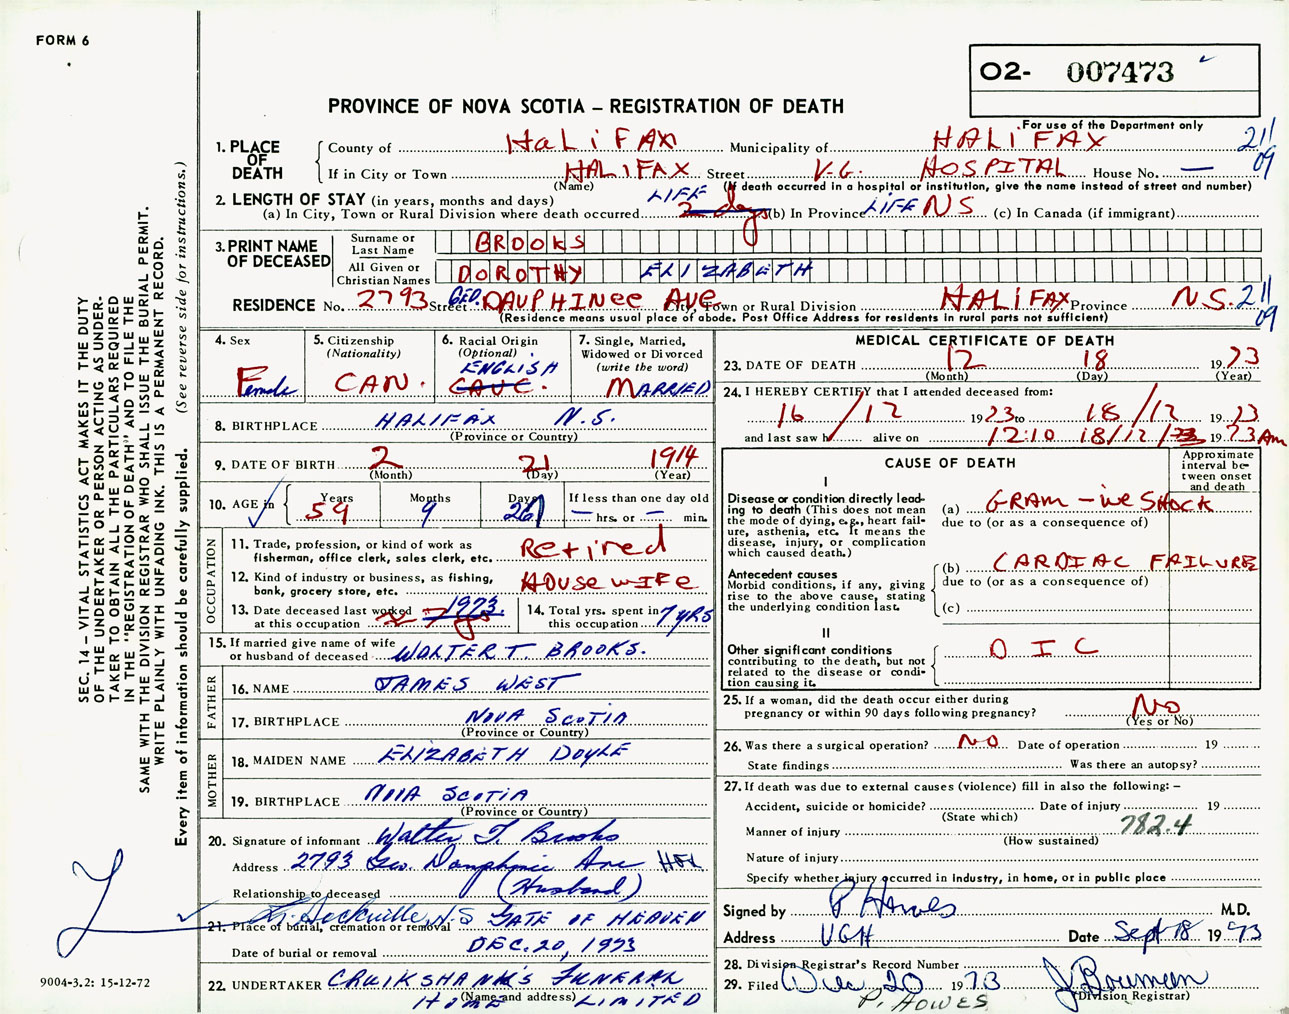 FORM 6
O2- 007473
PROVINCE OF NOVA SCOTIA – REGISTRATION OF DEATH
For use of the Department only
1. PLACE OF DEATH
County of HALIFAX Municipality of HALIFAX 211
If in City or Town HALIFAX Street V.G. HOSPITAL House No. — 09
(Name) (If death occurred in a hospital or institution, give the name instead of street and number)
2. LENGTH OF STAY (in years, months and days) LIFE
(a) In City, Town or Rural Division where death occurred 2 days (b) In Province LIFE NS (c) In Canada (if immigrant)
3. PRINT NAME OF DECEASED
Surname or Last Name BROOKS
All Given or Christian Names DOROTHY ELIZABETH
RESIDENCE No. 2793 Street GEO. DAUPHINEE AVE City, Town or Rural Division HALIFAX Province N.S. 211
(Residence means usual place of abode. Post Office Address for residents in rural parts not sufficient) 09
4. Sex Female
5. Citizenship (Nationality) CAN.
6. Racial Origin (Optional) ENGLISH CAUC.
7. Single, Married, Widowed or Divorced (write the word) MARRIED
8. BIRTHPLACE HALIFAX N.S.
(Province or Country)
9. DATE OF BIRTH 2 21 1914
(Month) (Day) (Year)
10. AGE in Years 59 Months 9 Days 26 If less than one day old — hrs. or — min.
OCCUPATION
11. Trade, profession, or kind of work as fisherman, office clerk, sales clerk, etc. Retired
12. Kind of industry or business, as fishing, bank, grocery store, etc. HOUSEWIFE
13. Date deceased last worked at this occupation 1973.
14. Total yrs. spent in this occupation 7 yRS
15. If married give name of wife or husband of deceased WALTER T. BROOKS.
FATHER
16. NAME JAMES WEST
17. BIRTHPLACE NOVA SCOTIA
(Province or Country)
MOTHER
18. MAIDEN NAME ELIZABETH DOYLE
19. BIRTHPLACE NOVA SCOTIA
(Province or Country)
20. Signature of informant Walter T. Brooks
Address 2793 Geo. Dauphinee Ave Hfx
Relationship to deceased (Husband)
21. Place of burial, cremation or removal Sackville, N.S GATE OF HEAVEN
Date of burial or removal DEC. 20, 1973
22. UNDERTAKER CRUIKSHANK'S FUNERAL
(Name and address) HOME LIMITED
MEDICAL CERTIFICATE OF DEATH
23. DATE OF DEATH 12 18 1973
(Month) (Day) (Year)
24. I HEREBY CERTIFY that I attended deceased from:
16 /12 1973 to 18 /12 1973
and last saw h alive on 12:10 18/12/73 1973 Am
CAUSE OF DEATH
Approximate interval between onset and death
I
Disease or condition directly leading to death (This does not mean the mode of dying, e.g., heart failure, asthenia, etc. It means the disease, injury, or complication which caused death.)
(a) GRAM -ive SHOCK
due to (or as a consequence of)
Antecedent causes
Morbid conditions, if any, giving rise to the above cause, stating the underlying condition last.
(b) CARDIAC FAILURE
due to (or as a consequence of)
(c)
II
Other significant conditions contributing to the death, but not related to the disease or condition causing it.
D I C
25. If a woman, did the death occur either during pregnancy or within 90 days following pregnancy? No
(Yes or No)
26. Was there a surgical operation? NO Date of operation 19
State findings Was there an autopsy?
27. If death was due to external causes (violence) fill in also the following: –
Accident, suicide or homicide? Date of injury 19
(State which)
Manner of injury 782.4
(How sustained)
Nature of injury
Specify whether injury occurred in industry, in home, or in public place
Signed by P Howes M.D.
Address VGH Date Sept 18 1973
28. Division Registrar's Record Number
29. Filed Dec 20 1973 J Bowman
P. HOWES (Division Registrar)
SEC. 14 – VITAL STATISTICS ACT MAKES IT THE DUTY
OF THE UNDERTAKER OR PERSON ACTING AS UNDERTAKER TO OBTAIN ALL THE PARTICULARS REQUIRED
IN THE "REGISTRATION OF DEATH" AND TO FILE THE
SAME WITH THE DIVISION REGISTRAR WHO SHALL ISSUE THE BURIAL PERMIT.
WRITE PLAINLY WITH UNFADING INK. THIS IS A PERMANENT RECORD.
Every item of information should be carefully supplied. (See reverse side for instructions.)
9004-3.2: 15-12-72